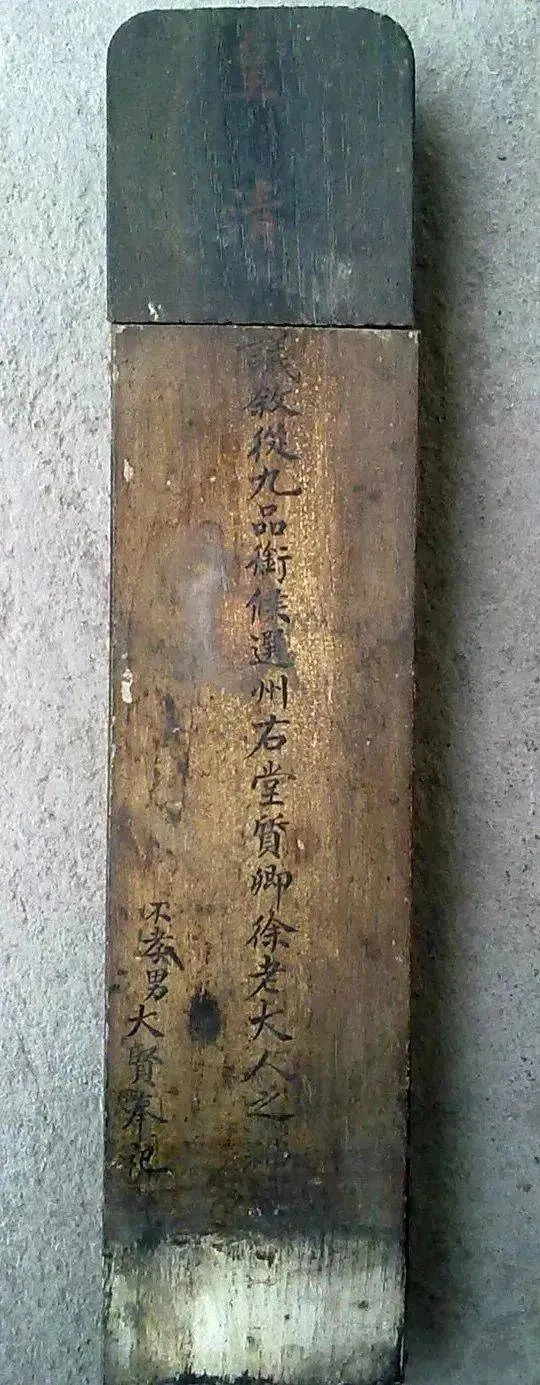 皇清
議敘從九品銜候選州右堂質卿徐老大人之神
不孝男大賢奉祀